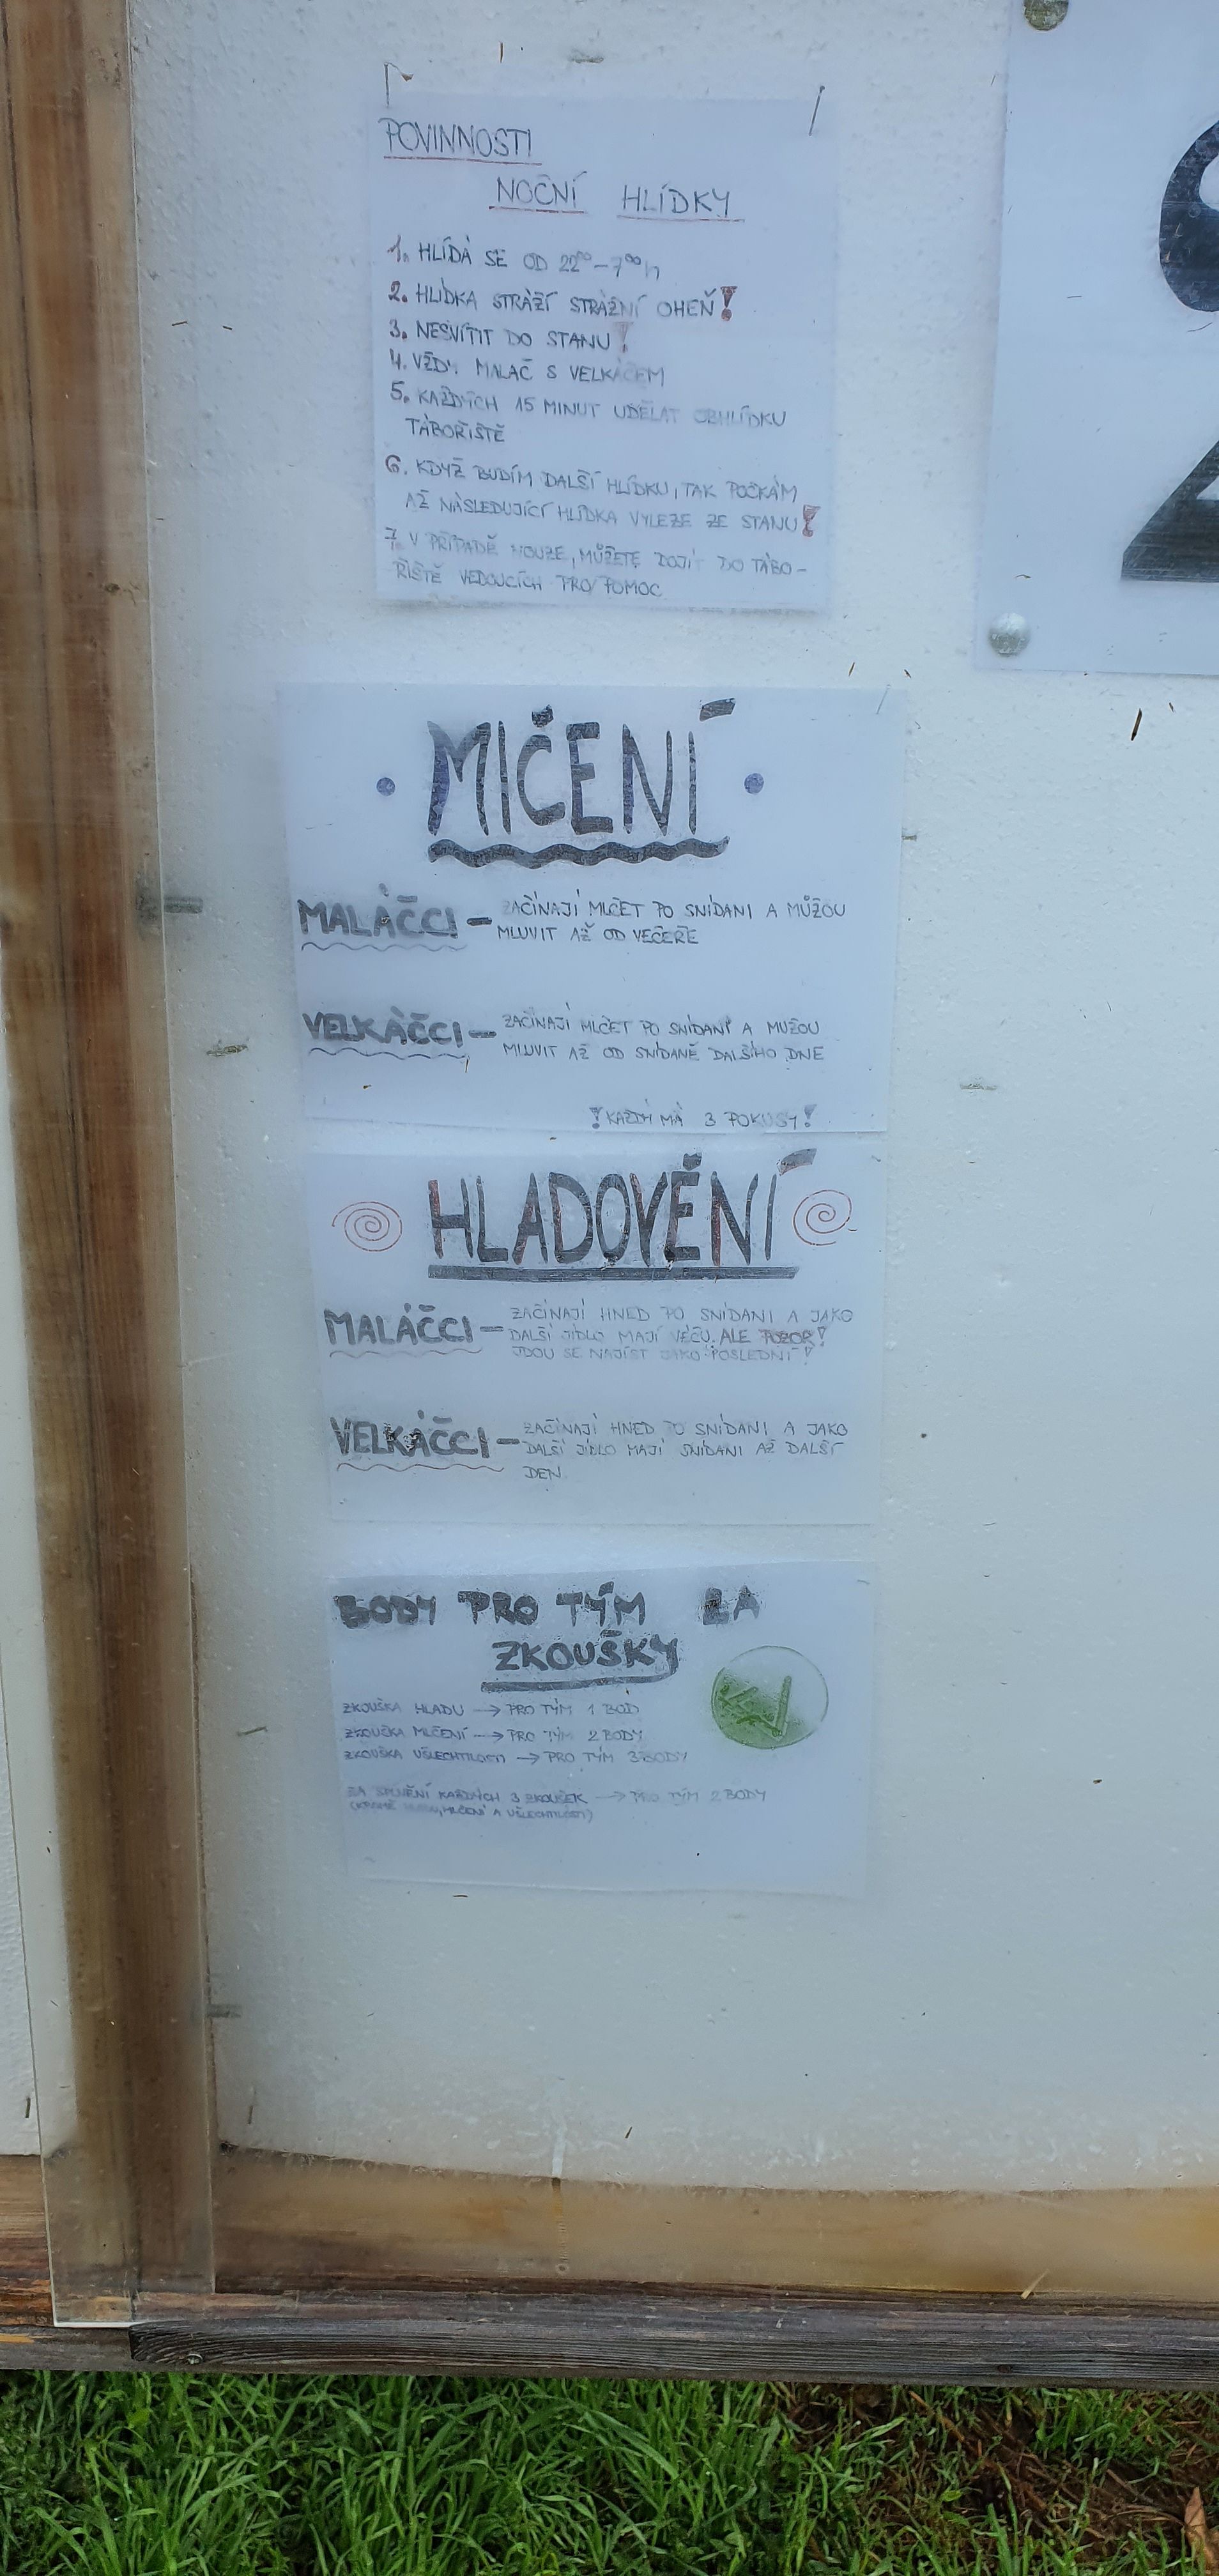 POVINNOSTI
NOČNÍ HLÍDKY
1. HLÍDÁ SE OD 22⁰⁰-7⁰⁰h
2. HLÍDKA STRÁŽÍ STRÁŽNÍ OHEŇ!
3. NESVÍTIT DO STANU!
4. VŽDY MALÁČ S VELKÁČEM
5. KAŽDÝCH 15 MINUT UDĚLAT OBHLÍDKU
TÁBOŘIŠTĚ
6. KDYŽ BUDÍM DALŠÍ HLÍDKU, TAK POČKÁM
AŽ NÁSLEDUJÍCÍ HLÍDKA VYLEZE ZE STANU!
7. V PŘÍPADĚ NOUZE, MŮŽETE DOJÍT DO TÁBO-
ŘIŠTĚ VEDOUCÍCH PRO POMOC
MlČENÍ
MALÁČCI - ZAČÍNAJÍ MLČET PO SNÍDANI A MŮŽOU
MLUVIT AŽ OD VEČEŘE
VELKÁČCI - ZAČÍNAJÍ MLČET PO SNÍDANI A MUŽOU
MLUVIT AŽ OD SNÍDANĚ DALŠÍHO DNE
! KAŽDÝ MÁ 3 POKUSY!
HLADOVĚNÍ
MALÁČCI - ZAČÍNAJÍ HNED PO SNÍDANI A JAKO
DALŠÍ JÍDLO MAJÍ VEČU. ALE POZOR!
JDOU SE NAJÍST JAKO POSLEDNÍ!
VELKÁČCI - ZAČÍNAJÍ HNED PO SNÍDANI A JAKO
DALŠÍ JÍDLO MAJÍ SNÍDANI AŽ DALŠÍ
DEN.
BODY PRO TÝM ZA
ZKOUŠKY
ZKOUŠKA HLADU → PRO TÝM 1 BOD
ZKOUŠKA MLČENÍ → PRO TÝM 2 BODY
ZKOUŠKA UŠLECHTILOSTI → PRO TÝM 3 BODY
ZA SPLNĚNÍ KAŽDÝCH 3 ZKOUŠEK → PRO TÝM 2 BODY
(KROMĚ MLČENÍ A UŠLECHTILOSTI)